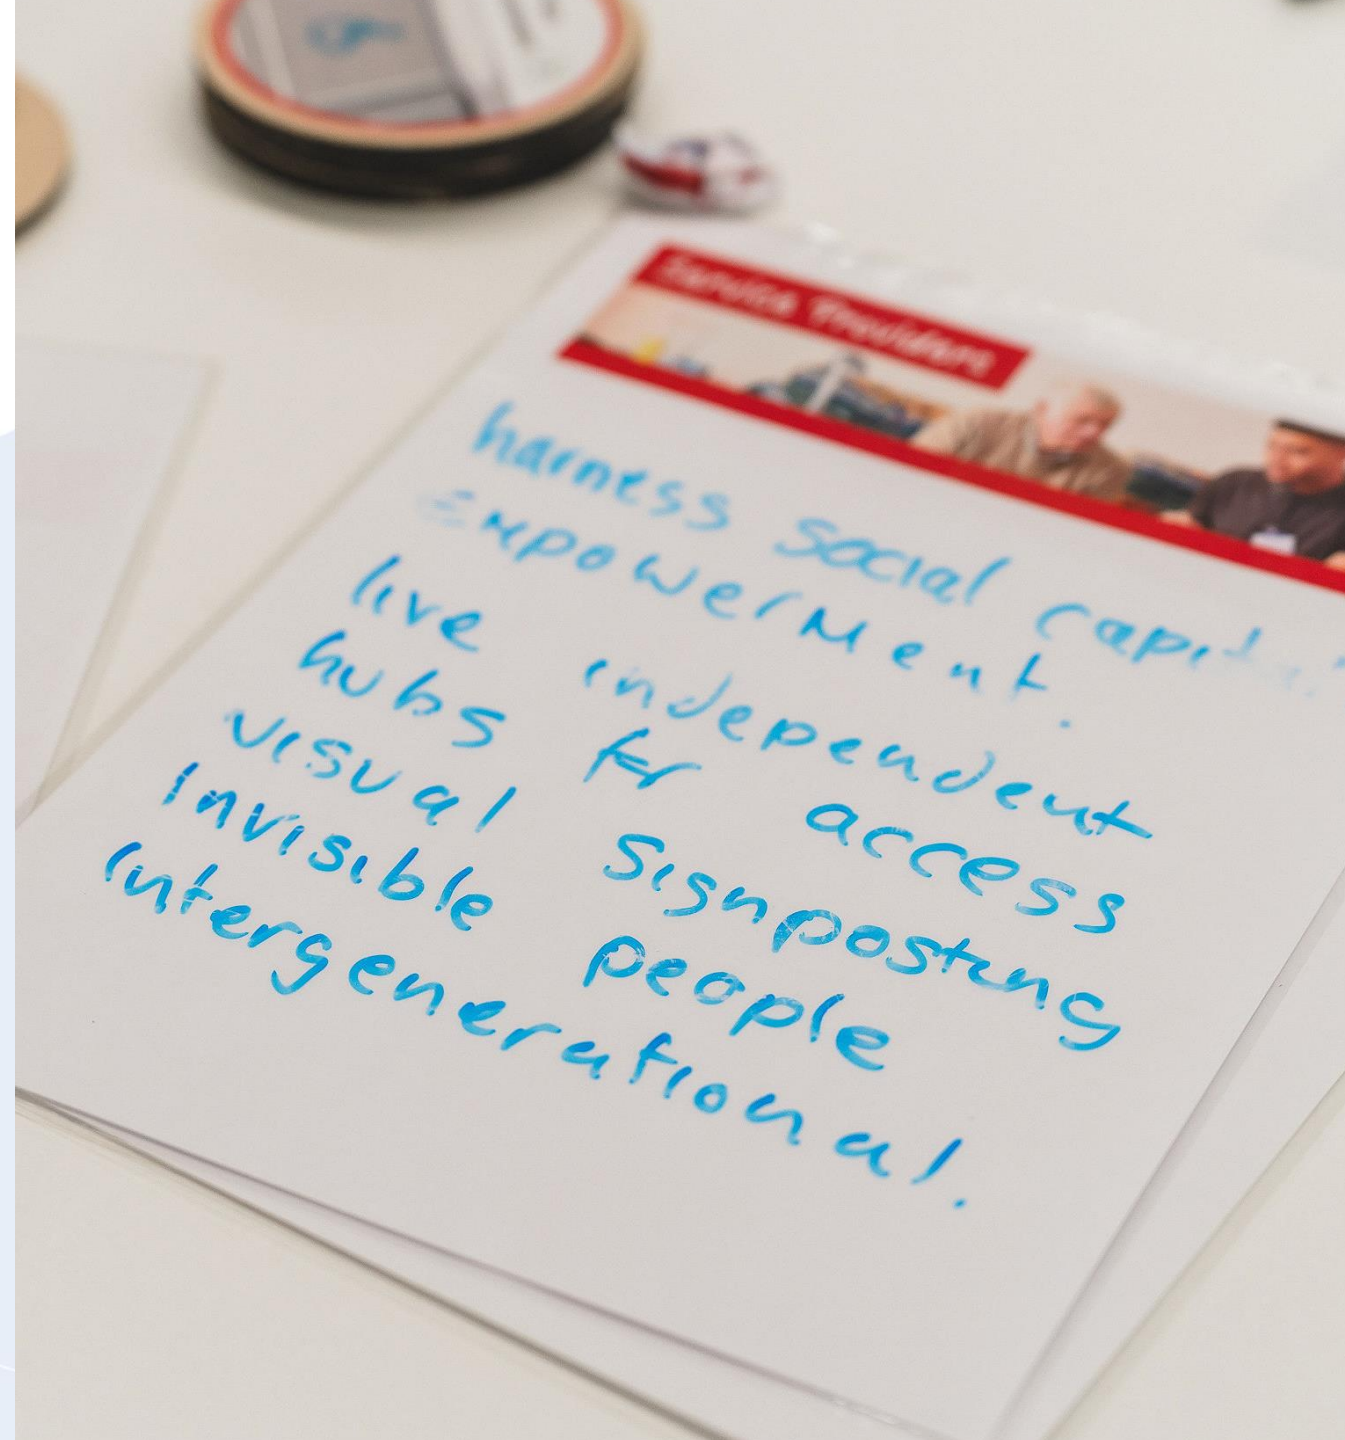 Service Providers
harness social capital
Empowerment.
live independent
hubs for access
visual signposting
invisible people
intergenerational.